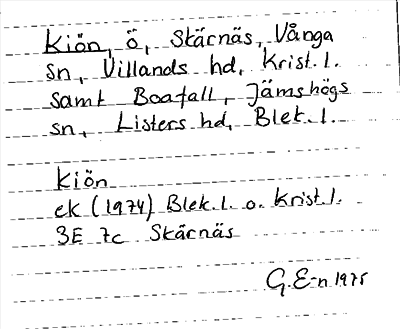 Kiön, ö, Skärnäs, Vånga
sn, Villands hd, Krist.l.
samt Boafall, Jämshögs
sn, Listers hd, Blek.l.
Kiön
ek (1974) Blek.l. o. Krist.l.
3E 7c Skärnäs
G.E-n 1975